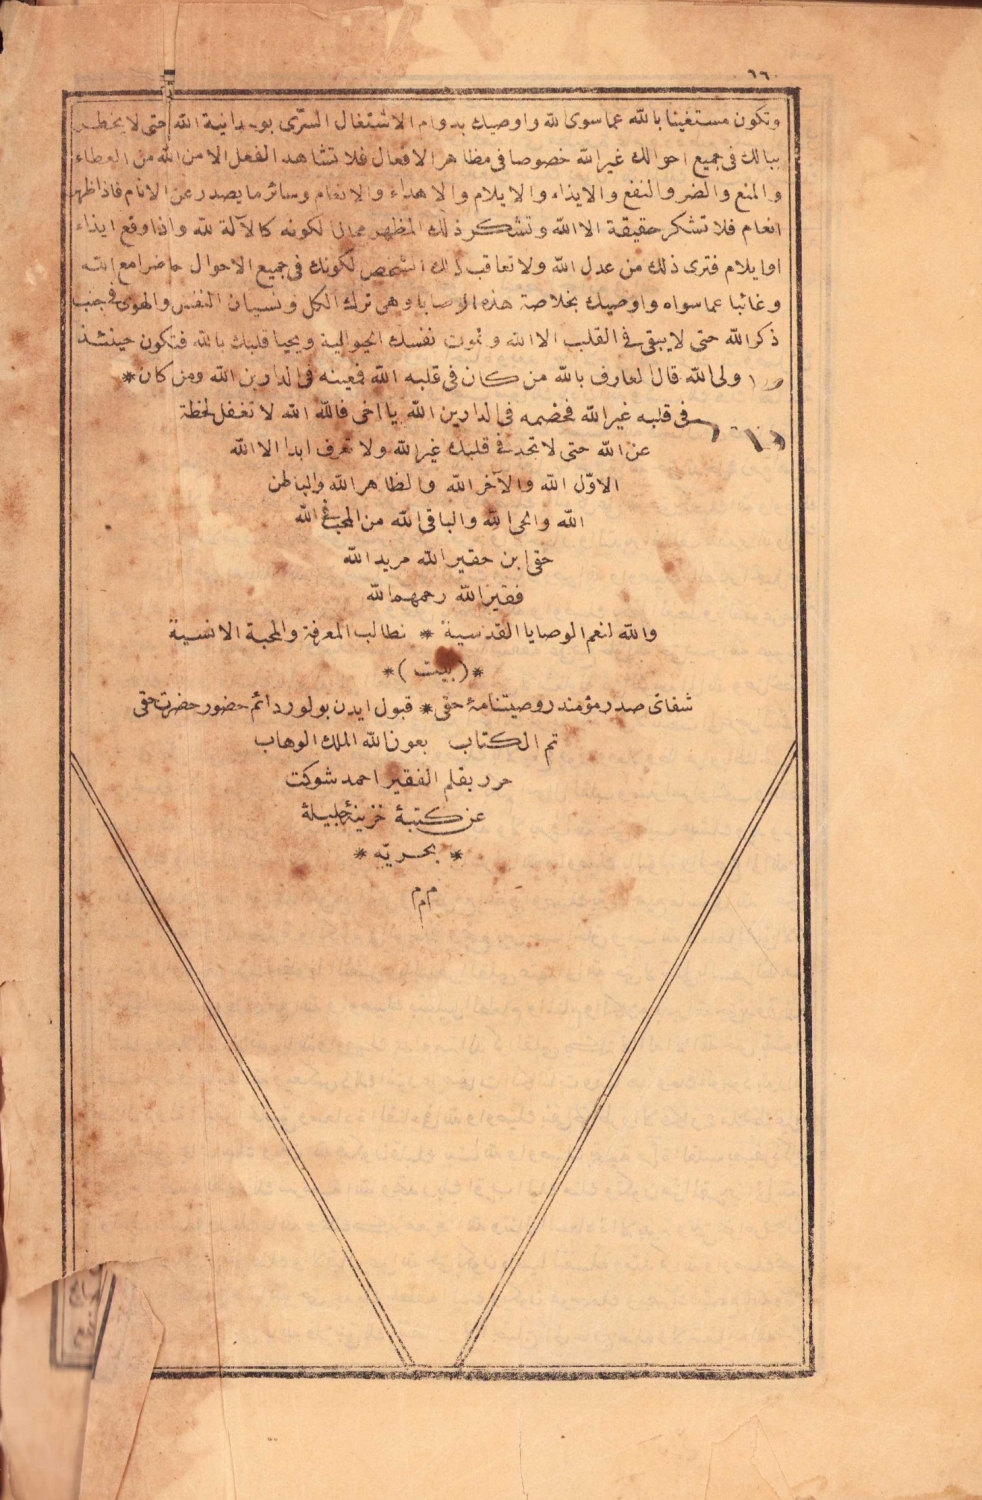 ٦٦
وتكون مستغنيا بالله عما سوى لله واوصيك بدوام الاشتغال السرّى بوحدانية الله حتى لا يخطر
ببالك فى جميع احوالك غير الله خصوصا فى مظاهر الافعال فلا تشاهد الفعل الا من الله من العطاء
والمنع والضر والنفع والايذاء والايلام والاهداء والانعام وسائر ما يصدر عن الانام فاذا ظهر
انعام فلا تشكر حقيقة الا الله وتشكر ذلك المظهر مجازا لكونه كالآلة لله واذا وقع ايذاء
او ايلام فترى ذلك من عدل الله ولا تعاقب ذلك الشخص لكونك فى جميع الاحوال حاضرا مع الله
وغائبا عما سواه واوصيك بخلاصة هذه الوصايا وهى ترك الكل ونسيان النفس والهوى فى جنب
ذكر الله حتى لا يبقى فى القلب الا الله وتموت نفسك الحيوانية ويحيا قلبك بالله فتكون حينئذ
ولى الله قال العارف بالله من كان فى قلبه الله فمعينه فى الدارين الله ومن كان *
فى قلبه غير الله فخصمه فى الدارين الله يا اخى فالله الله لا تغفل لحظة
عن الله حتى لا تجد فى قلبك غير الله ولا تعرف ابدا الا الله
الاوّل الله والآخر الله والظاهر الله والباطن
الله والحى الله والباقى الله من المحب فى الله
حقى ابن حقير الله مريد الله
فقير الله رحمهم الله
والله لنعم الوصايا القدسية * نطالب المعرفة والمحبة الانسية
* ( بيت ) *
شفائى صدر مؤمندر وصيتنامۀ حقى * قبول ايدن بولور دائم حضور حضرت حقى
تم الكتاب بعون الله الملك الوهاب
حرر بقلم الفقير احمد شوكت
عن كتبۀ خزينۀ جليلۀ
* بحريّه *
م م م